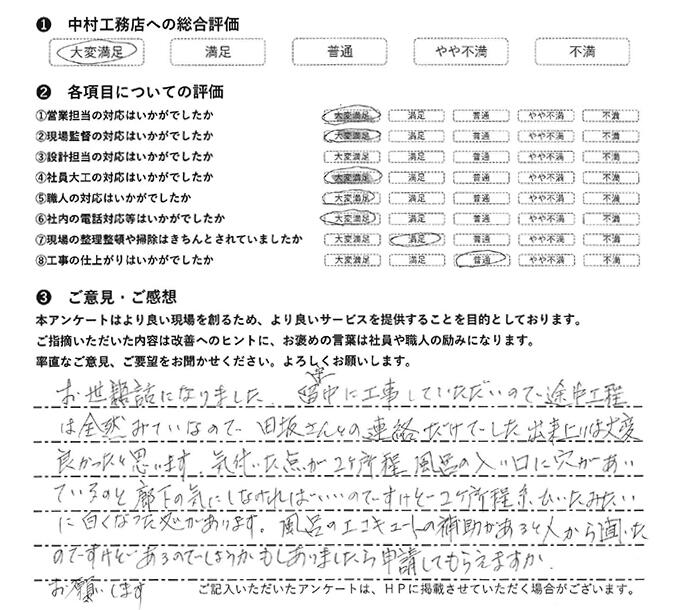 ❶ 中村工務店への総合評価
大変満足 満足 普通 やや不満 不満
❷ 各項目についての評価
①営業担当の対応はいかがでしたか 大変満足 満足 普通 やや不満 不満
②現場監督の対応はいかがでしたか 大変満足 満足 普通 やや不満 不満
③設計担当の対応はいかがでしたか 大変満足 満足 普通 やや不満 不満
④社員大工の対応はいかがでしたか 大変満足 満足 普通 やや不満 不満
⑤職人の対応はいかがでしたか 大変満足 満足 普通 やや不満 不満
⑥社内の電話対応等はいかがでしたか 大変満足 満足 普通 やや不満 不満
⑦現場の整理整頓や掃除はきちんとされていましたか 大変満足 満足 普通 やや不満 不満
⑧工事の仕上がりはいかがでしたか 大変満足 満足 普通 やや不満 不満
❸ ご意見・ご感想
本アンケートはより良い現場を創るため、より良いサービスを提供することを目的としております。
ご指摘いただいた内容は改善へのヒントに、お褒めの言葉は社員や職人の励みになります。
率直なご意見、ご要望をお聞かせください。よろしくお願いします。
お世話になりました。留守中に工事していただいので途中工程
は全然みていなので 田坂さんとの連絡だけでした 出来上りは大変
良かったと思います。気付いた点が2ヶ所程 風呂の入り口に穴があい
ているのと廊下の気にしなければいいのですけど2ヶ所程糸ひいたみたい
に白くなった処があります。風呂のエコキュートの補助があると人から聞いた
のですけどあるのでしょうか もしありましたら申請してもらえますか。
お願いします
ご記入いただいたアンケートは、HPに掲載させていただく場合がございます。